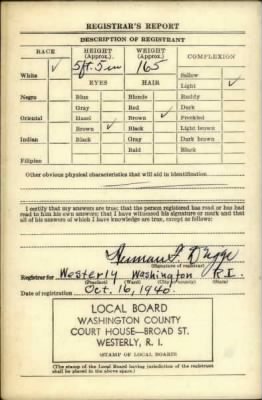 REGISTRAR'S REPORT
DESCRIPTION OF REGISTRANT
RACE HEIGHT (Approx.) WEIGHT (Approx.) COMPLEXION
White ✓ 5ft. 5in 165 Sallow
EYES HAIR Light ✓
Negro Blue Blonde Ruddy
Gray Red Dark
Oriental Hazel Brown ✓ Freckled
Brown ✓ Black Light brown
Indian Black Gray Dark brown
Bald Black
Filipino
Other obvious physical characteristics that will aid in identification
I certify that my answers are true; that the person registered has read or has had
read to him his own answers; that I have witnessed his signature or mark and that
all of his answers of which I have knowledge are true, except as follows:
(Signature of registrar)
Registrar for Westerly Washington R.I.
(Precinct) (Ward) (City or county) (State)
Date of registration Oct. 16, 1940.
LOCAL BOARD
WASHINGTON COUNTY
COURT HOUSE—BROAD ST.
WESTERLY, R. I.
(STAMP OF LOCAL BOARD)
(The stamp of the Local Board having jurisdiction of the registrant
shall be placed in the above space.)